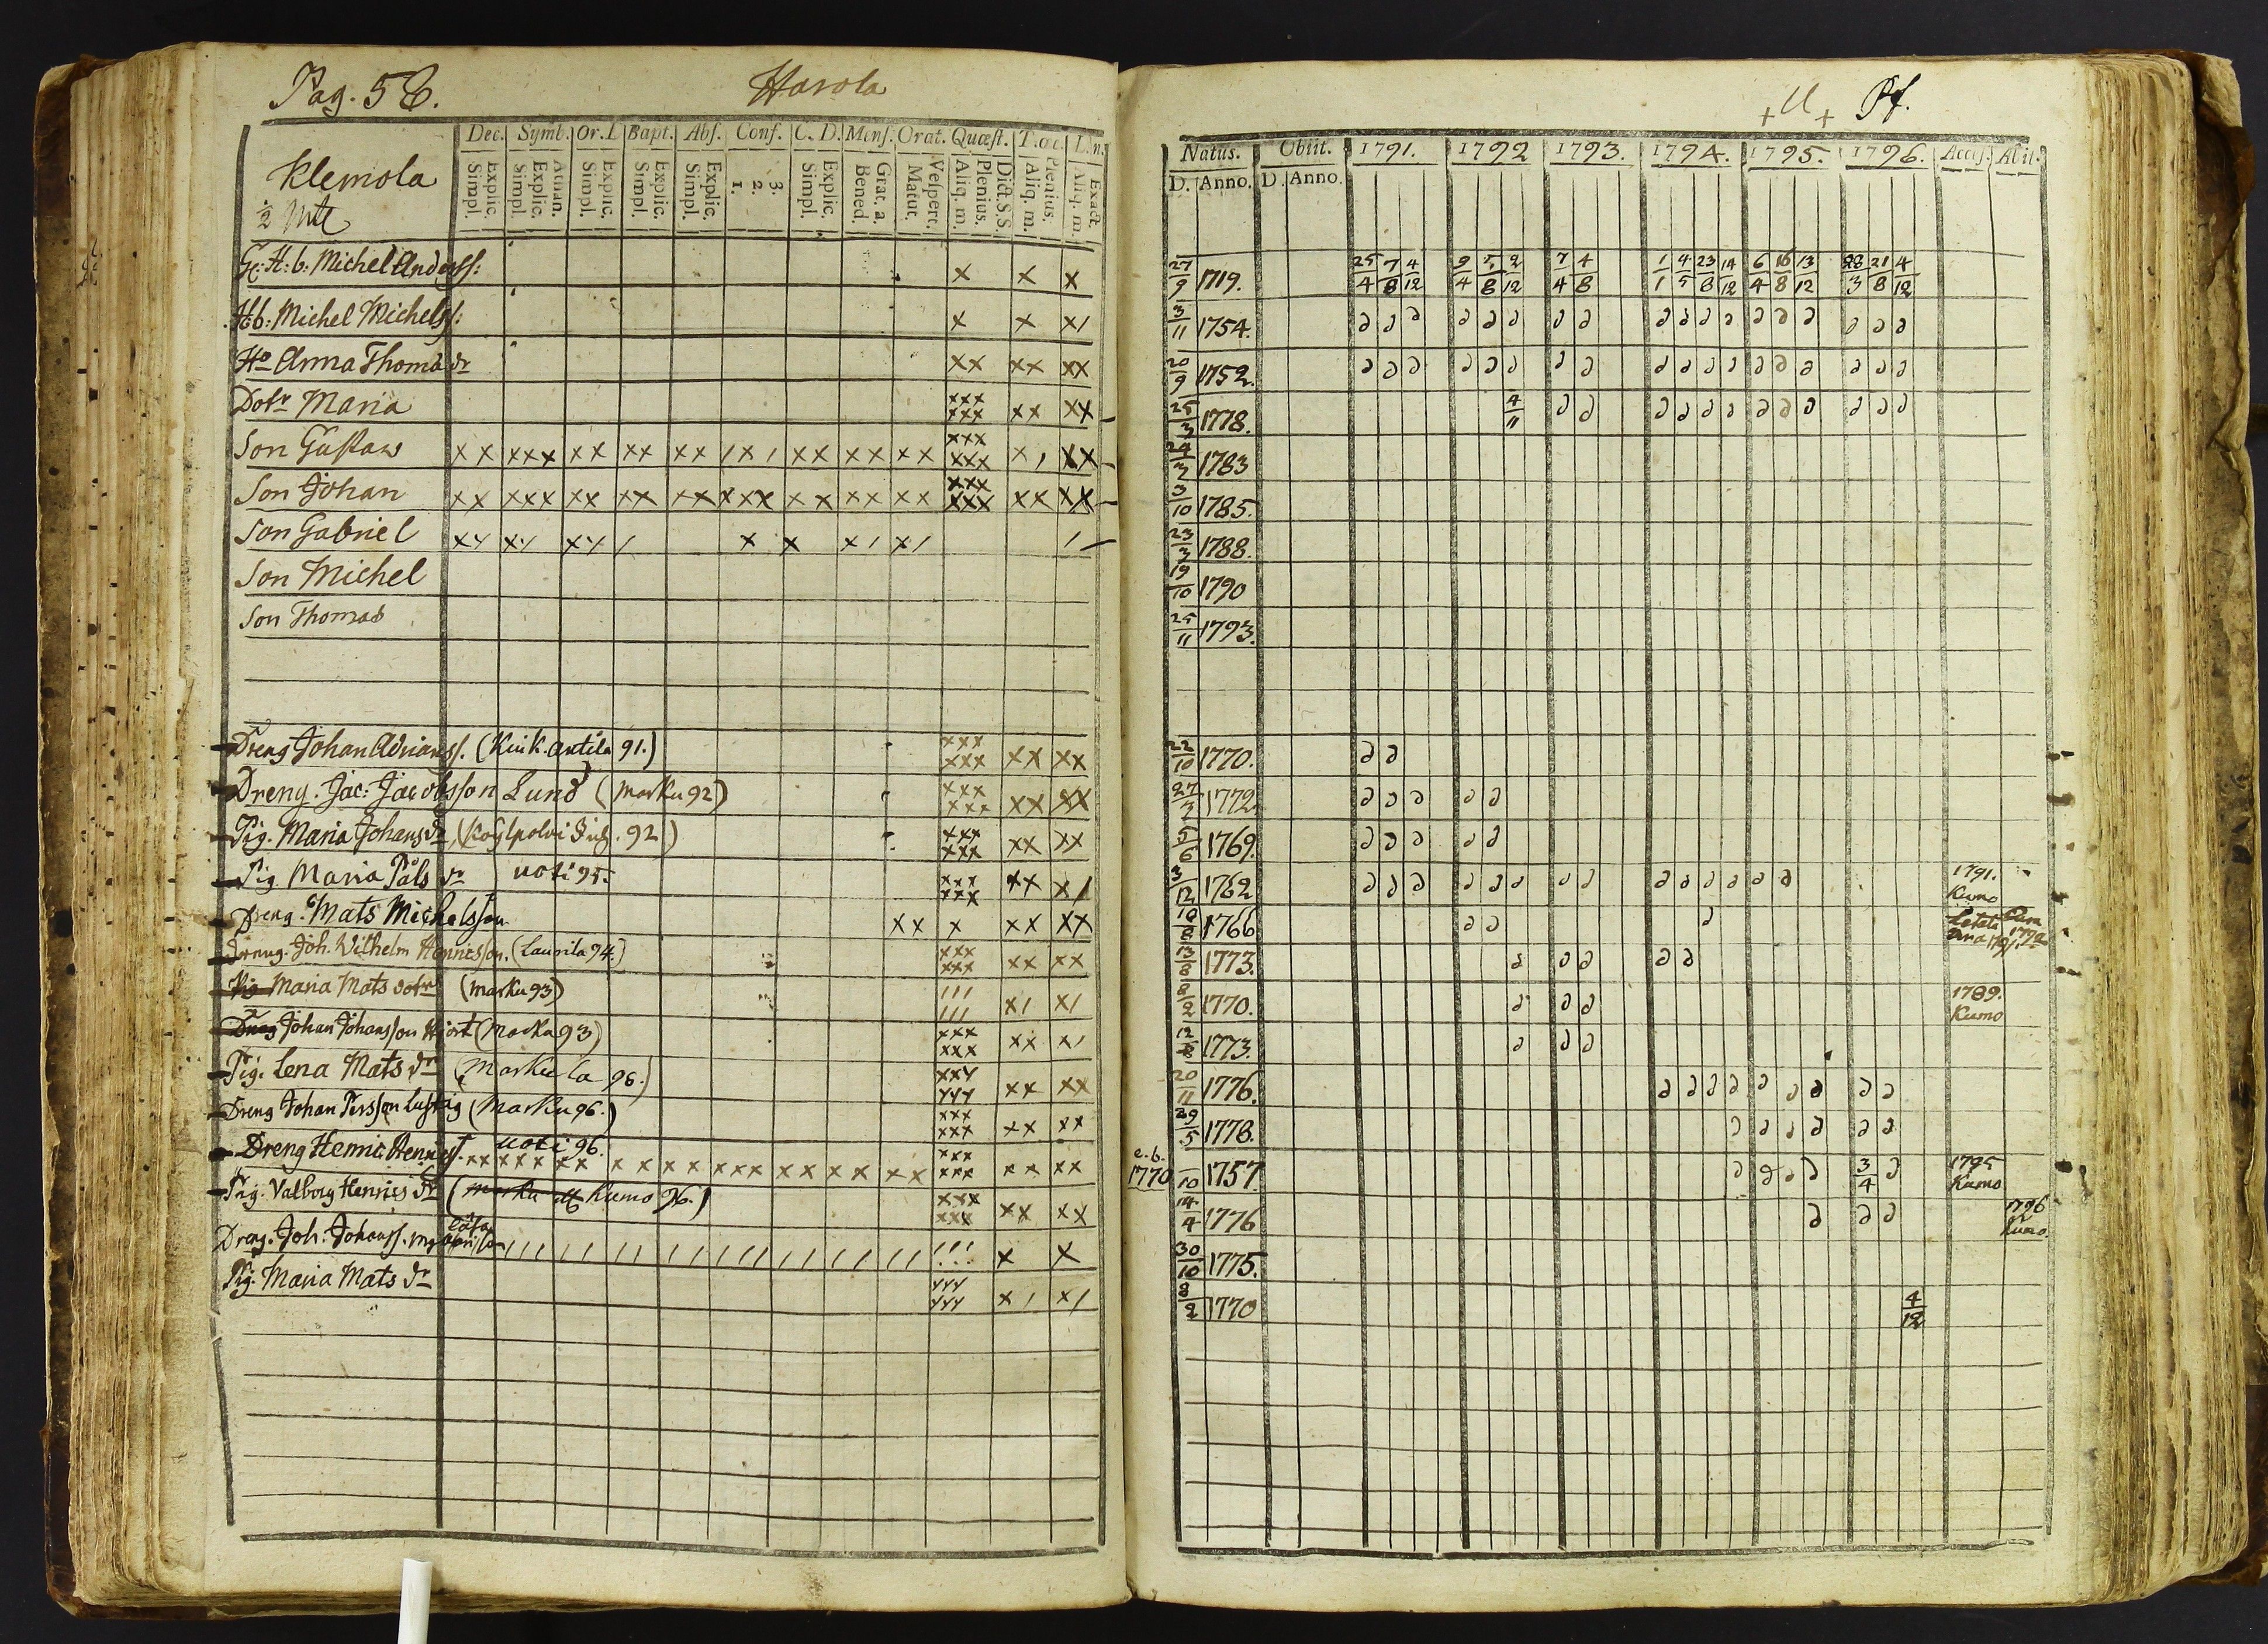 Pag. 58.
Harola
Dec. Symb. Or. L Bapt. Abs. Conf. C. D. Mens. Orat. Quæst. T. œc. L. n.
Klemola
½ Mtl
Explic. Simpl. Athan. Explic. Simpl. Explic. Simpl. Explic. Simpl. Explic. Simpl. 3. 2. 1. Explic. Simpl. Grat. a. Bened. Vespert. Matut. Dict. S.S. Plenius. Aliq. m. Plenius. Aliq. m. Exact. Aliq. m.
G: H: b: Michel Anderss: x x x
Hb: Michel Michelss: x x x/
Ho Anna Thomæ dr xx xx xx
Dotr Maria xxx xxx xx xx
Son Gustaw xx xxx xx xx xx /x/ xx xx xx xxx xxx x/ xx
Son Johan xx xxx xx xx xx xxx xx xx xx xxx xxx xx xx
Son Gabriel x x x/ x/ /
Son Michel
Son Thomas
Dreng Johan Adrianss. (Kiuk. Antila 91.) xxx xxx xx xx
Dreng. Jac: Jacobsson Lund (Marku 92) xxx xxx xx xx
Pig. Maria Johansdr (Köylpolvi 92) xxx xxx xx xx
Pig Maria Påls dr uoti 95. xxx xxx xx x/
Dreng. Mats Michelsson xx x xx xx
Dreng. Joh. Wilhelm Henricsson. (Laurila 94.) xxx xxx xx xx
Pig Maria Mats dotr (Marku 93) /// /// x/ x/
Dreng Johan Johansson Hjort (Marku 93) xxx xxx xx x/
Pig. Lena Mats dr (Markula 96.) xx xx
Dreng Johan Persson Lustig (Marku 96.) xxx xxx xx xx
Dreng Henric Henricss. uoti 96. xx xxx xx xx xx xxx xx xx xx xxx xxx xx xx
Pig. Valborg Henrics dr (Marku Kumo 96.) xxx xxx xx xx
Dreng. Joh: Johanss. x x
Pig. Maria Mats dr x/ x/
+ U + Pf.
Natus. Obiit. 1791. 1792 1793. 1794. 1795. 1796. Access. Abit.
D. Anno. D. Anno.
27/9 1719. 25/4 7/8 4/12 9/4 5/8 2/12 7/4 4/8 1/1 4/5 23/8 14/12 6/4 16/8 13/12 28/3 21/8 4/12
3/11 1754.
20/9 1752.
25/3 1778. 4/11
24/3 1783
3/10 1785.
23/3 1788.
19/10 1790
25/11 1793.
22/10 1770.
27/3 1772
5/6 1769.
3/12 1762 1791. Kumo
18/8 1766
13/8 1773.
8/2 1770. 1789. Kumo
12/8 1773.
20/11 1776.
29/5 1778.
e. b. 1770
10 1757. 3/4 1795 Kumo
14/4 1776 1796 Kumo.
30/10 1775.
8/2 1770 4/12